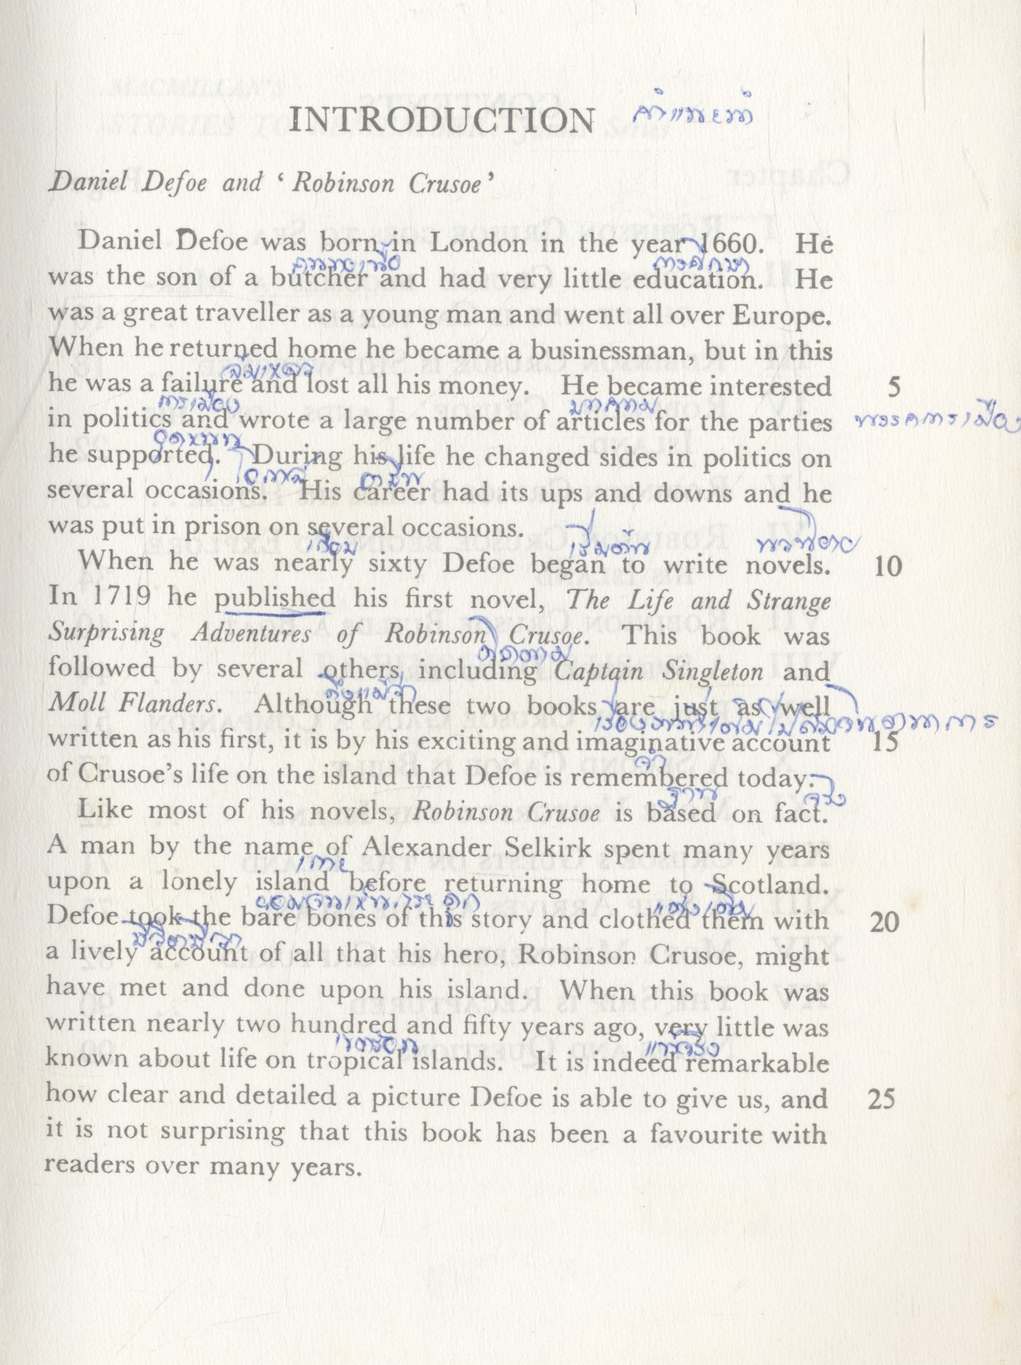 INTRODUCTION คำแนะนำ
Daniel Defoe and ‘Robinson Crusoe’
Daniel Defoe was born in London in the year 1660. He
การศึกษา
was the son of a butcher and had very little education. He
was a great traveller as a young man and went all over Europe.
When he returned home he became a businessman, but in this
ล้มเหลว
he was a failure and lost all his money. He became interested 5
การเมือง บทความ
in politics and wrote a large number of articles for the parties พรรคการเมือง
อุดหนุน
he supported. During his life he changed sides in politics on
โอกาส อาชีพ
several occasions. His career had its ups and downs and he
was put in prison on several occasions.
เกือบ เริ่มต้น นวนิยาย
When he was nearly sixty Defoe began to write novels. 10
In 1719 he published his first novel, The Life and Strange
Surprising Adventures of Robinson Crusoe. This book was
ติดตาม
followed by several others, including Captain Singleton and
ถึงแม้ว่า
Moll Flanders. Although these two books are just as well
written as his first, it is by his exciting and imaginative account 15
จำ
of Crusoe’s life on the island that Defoe is remembered today.
ฐาน จริง
Like most of his novels, Robinson Crusoe is based on fact.
A man by the name of Alexander Selkirk spent many years
เกาะ
upon a lonely island before returning home to Scotland.
Defoe took the bare bones of this story and clothed them with 20
มีชีวิตชีวา
a lively account of all that his hero, Robinson Crusoe, might
have met and done upon his island. When this book was
written nearly two hundred and fifty years ago, very little was
เขตร้อน แท้จริง
known about life on tropical islands. It is indeed remarkable
how clear and detailed a picture Defoe is able to give us, and 25
it is not surprising that this book has been a favourite with
readers over many years.